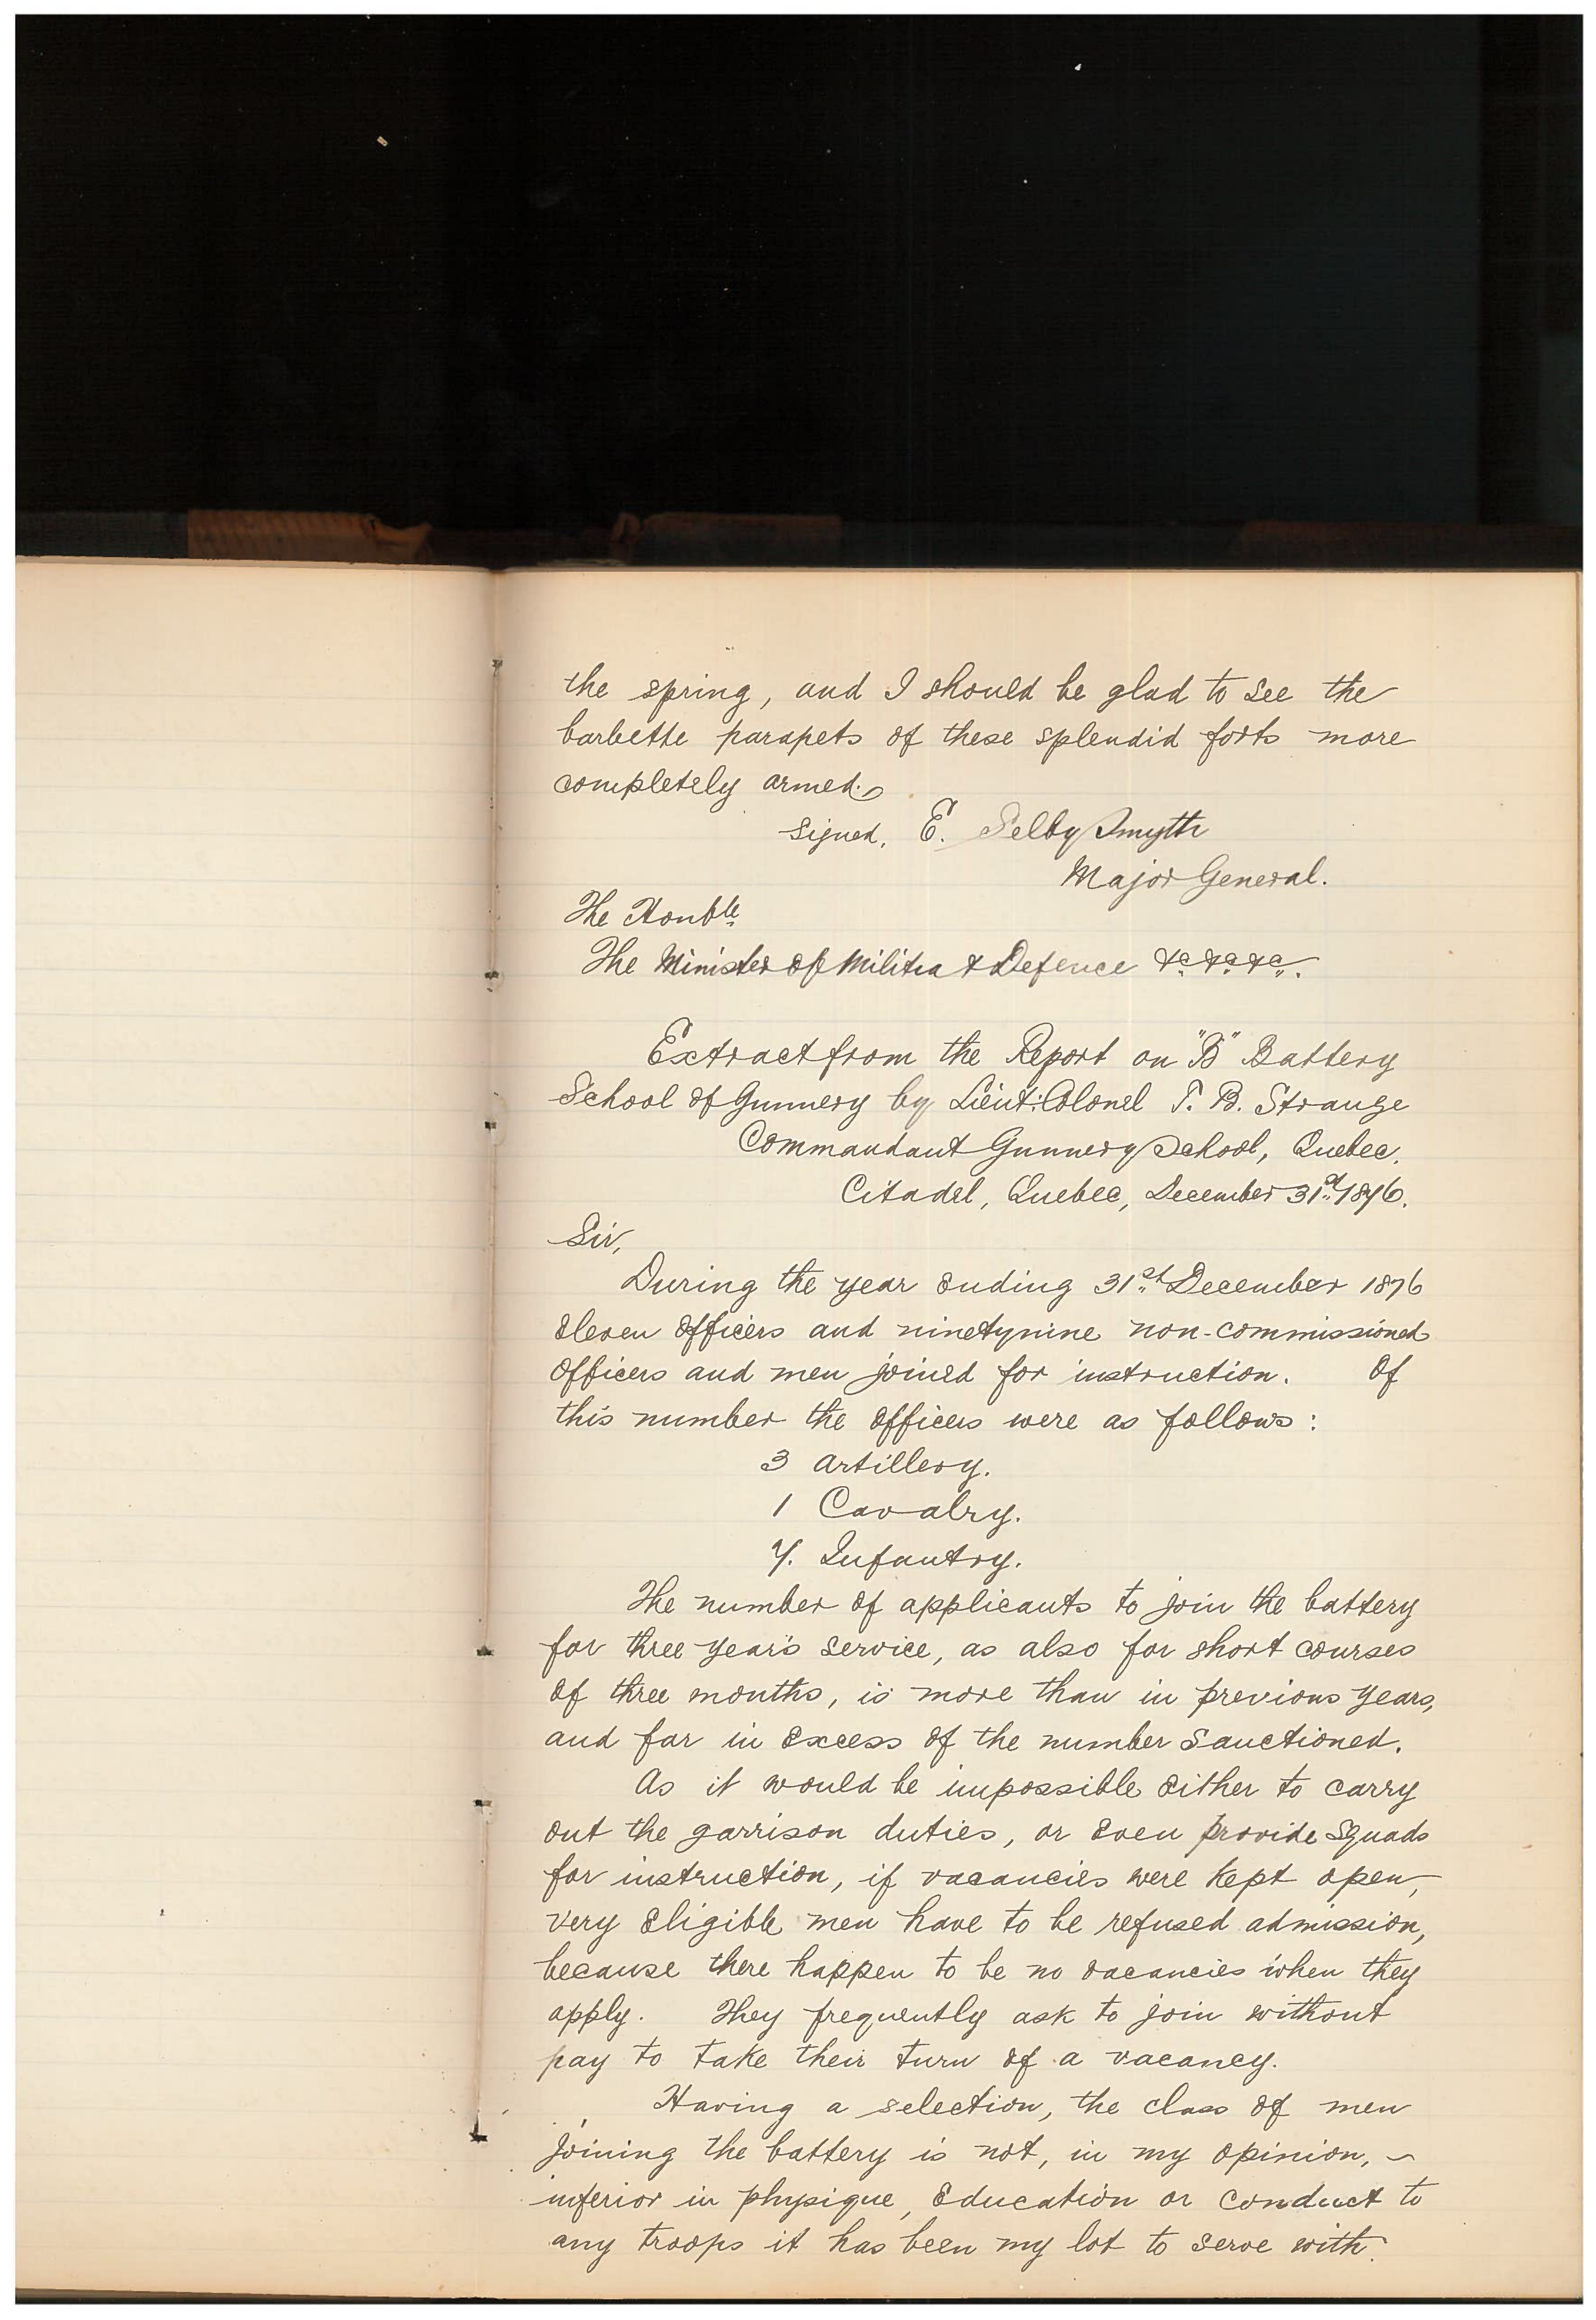 the spring, and I should be glad to see the
barbette parapets of these splendid forts more
completely armed.
Signed, E. Selby Smyth
Major General.
The Honble
The Minister of Militia & Defence &c. &c. &c.
Extract from the Report on "B" Battery
School of Gunnery by Lieut: Colonel T. B. Strange
Commandant Gunnery School, Quebec.
Citadel, Quebec, December 31st 1876.
Sir,
During the year ending 31st December 1876
eleven officers and ninetynine non-commissioned
officers and men joined for instruction. Of
this number the officers were as follows:
3 Artillery.
1 Cavalry.
7. Infantry.
The number of applicants to join the battery
for three year's service, as also for short courses
of three months, is more than in previous years,
and far in excess of the number sanctioned.
As it would be impossible either to carry
out the garrison duties, or even provide squads
for instruction, if vacancies were kept open,
very eligible men have to be refused admission,
because there happen to be no vacancies when they
apply. They frequently ask to join without
pay to take their turn of a vacancy.
Having a selection, the class of men
joining the battery is not, in my opinion, ~
inferior in physique, education or conduct to
any troops it has been my lot to serve with.